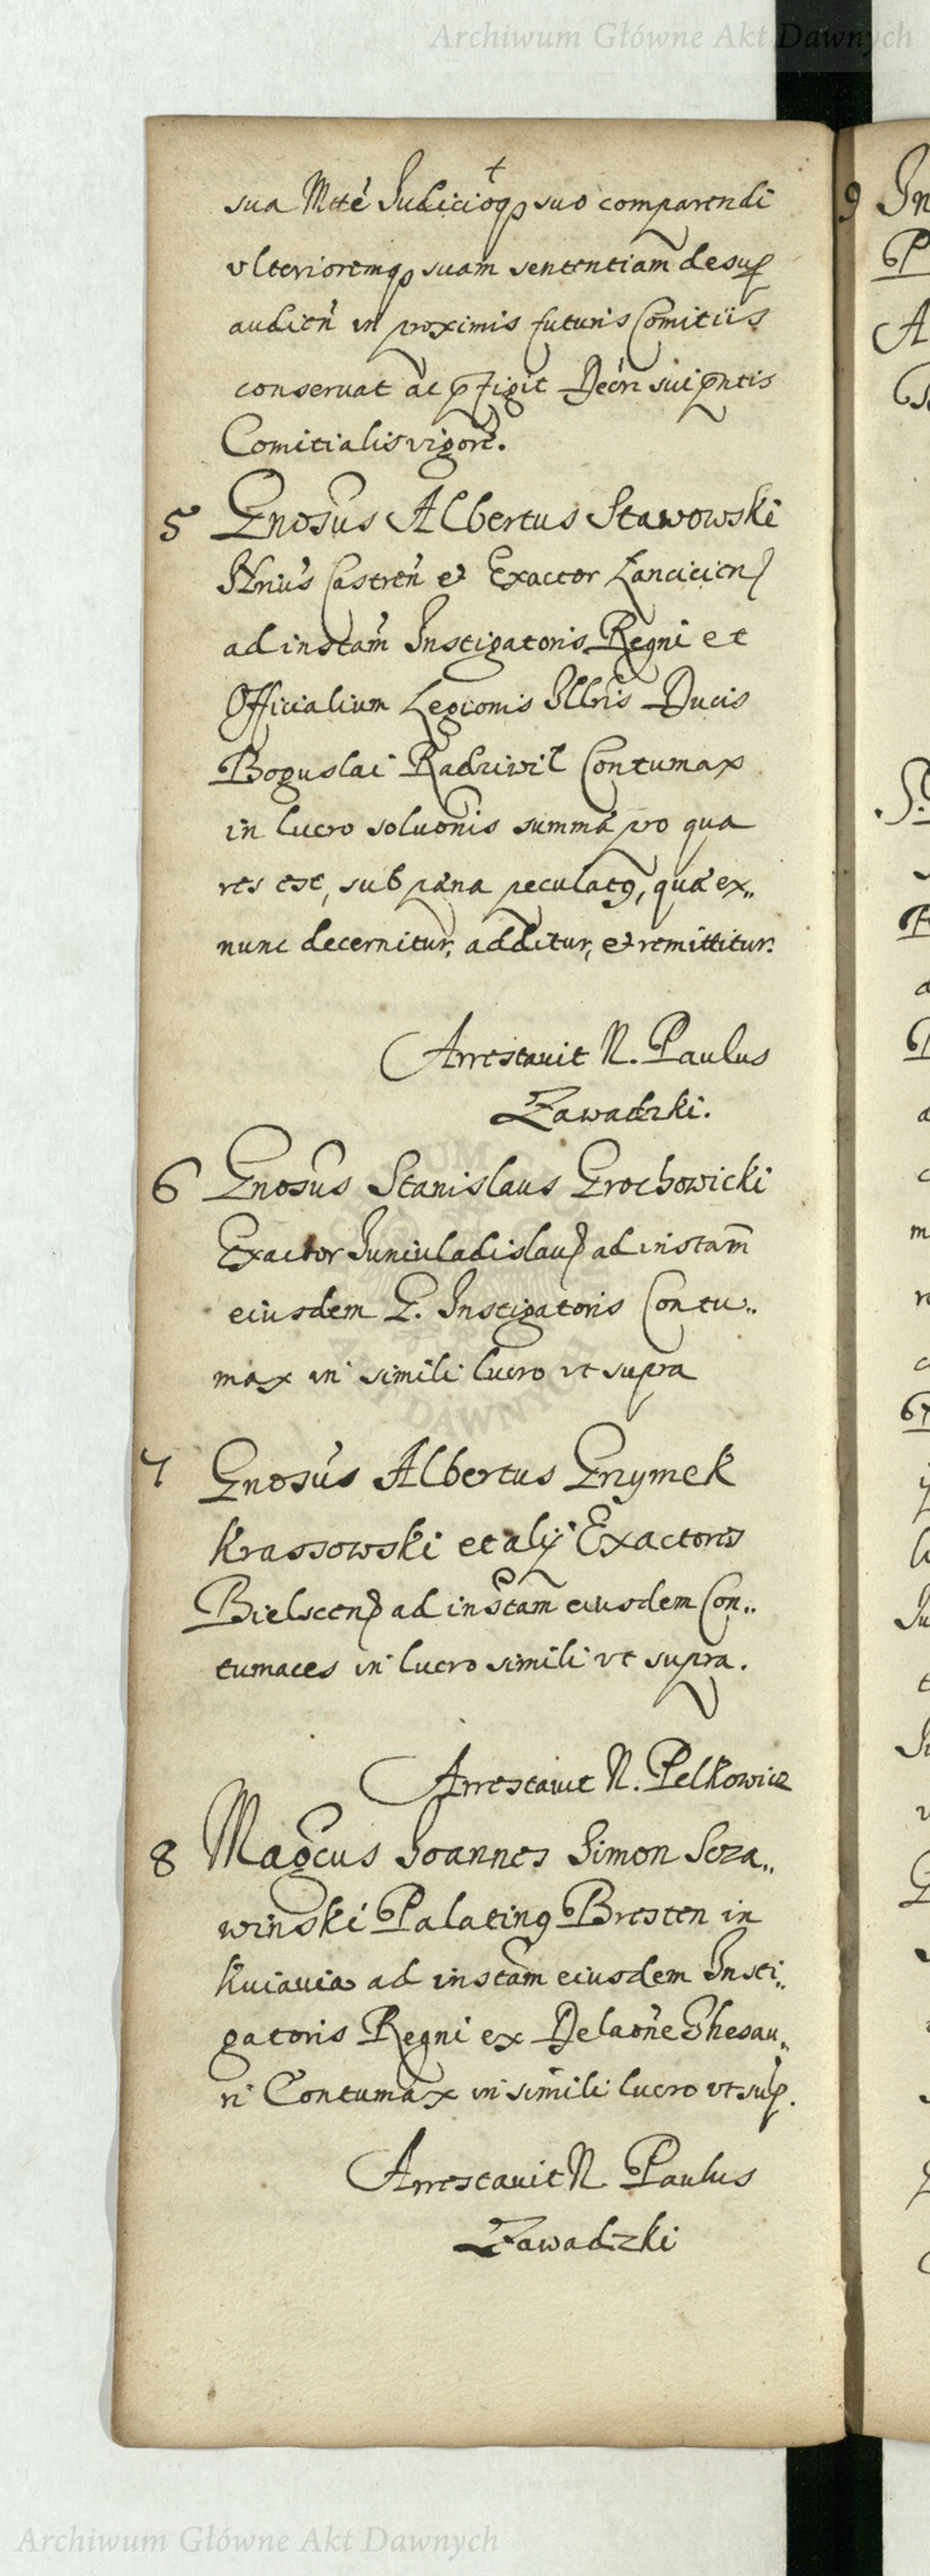 Archiwum Główne Akt Dawnych
sua Mtté Judicioqꝫ suo comparendi
vlterioremqꝫ suam sententiam desuꝑ
audien̄ in proximis futuris Comitiis
conseruat ac p̄figit Decri sui pn̄tis
Comitialis vigore.
5 Gnosus Albertus Stawowski
Nrius Castren̄ et Exactor Lancicien
ad instam̄ Instigatoris Regni et
Officialium Legionis Illris Ducis
Boguslai Radziwil Contumax
in lucro soluonis summa pro qua
res est, sub pæna peculatꝰ, qua ex„
nunc decernitur, additur, et remittitur.
Arrestauit N. Paulus
Zawadzki.
6 Gnosus Stanislaus Grochowicki
Exactor Juniuladislau ad instam̄
eiusdem G. Instigatoris Contu„
max in simili lucro vt supra
7 Gnosus Albertus Grzymek
Krassowski et alij Exactores
Bielscen ad instam eiusdem Con„
tumaces in lucro simili vt supra.
Arrestauit N. Pelkowicz
8 Magcus Joannes Simon Scza„
winski Palatinꝰ Bresten in
Kuiauia ad instam eiusdem Insti„
gatoris Regni ex Delaone Thesau„
ri Contumax in simili lucro vt suꝑ.
Arrestauit N Paulus
Zawadzki
9 In
Archiwum Główne Akt Dawnych